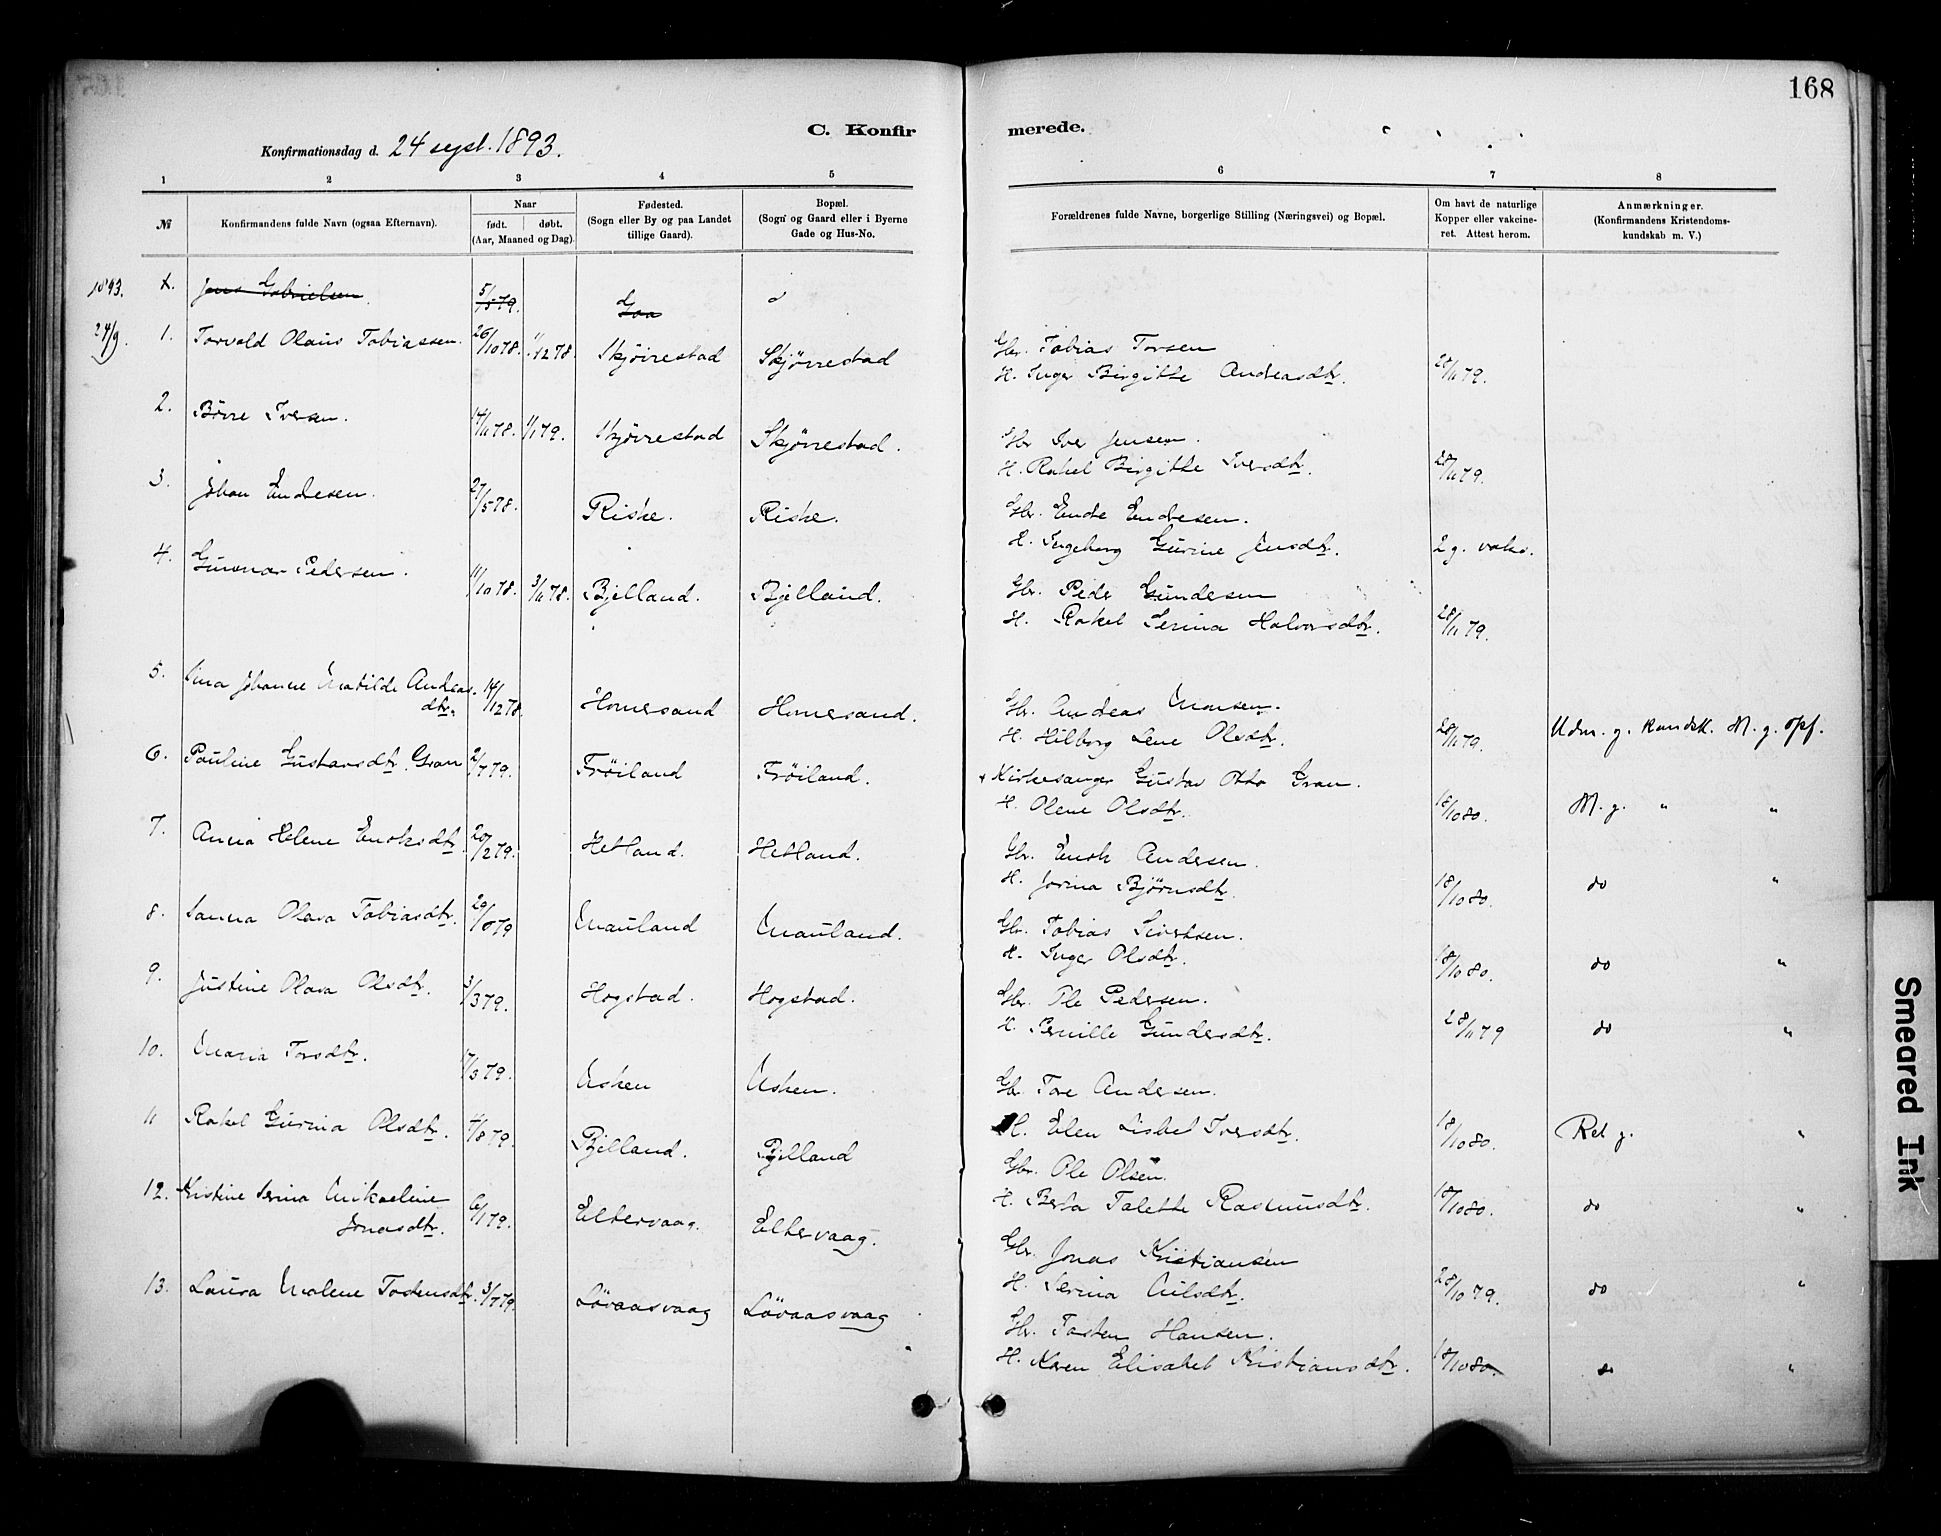 168
C. Konfir
merede.
Konfirmationsdag d. 24 sept. 1893.
1 2 3 4 5 6 7 8
№ Konfirmandens fulde Navn (ogsaa Efternavn). Naar født. døbt. (Aar, Maaned og Dag). Fødested. (Sogn eller By og paa Landet tillige Gaard). Bopæl. (Sogn og Gaard eller i Byerne Gade og Hus-No.
Forældrenes fulde Navne, borgerlige Stilling (Næringsvei) og Bopæl. Om havt de naturlige Kopper eller vakcineret. Attest herom. Anmærkninger. (Konfirmandens Kristendomskundskab m. V.)
1893. Jens Gabrielsen. 5/5 79. Gaa
24/9. 1. Torvald Olaus Tobiassen. 26/10 78. 1/12 78. Skjørestad Skjørestad
Gbr. Tobias Torsen
H. Inger Birgitte Andreasdtr. 28/11 79.
2. Børre Iversen. 14/11 78. 1/1 79. Skjørestad Skjørestad.
Gbr Iver Jensen.
H. Rakel Birgitte Iversdtr. 28/11 79.
3. Johan Endresen. 27/5 78. Riske. Riske.
Gbr. Endre Endresen.
H. Ingeborg Gurine Jensdtr. 2 g. vakc.
4. Gunnar Pedersen. 11/10 78. 3/11 78. Bjelland. Bjelland.
Gbr. Peder Gundersen
H. Rakel Serina Halvorsdtr. 28/11 79.
5. Sina Johanne Matilde Andreasdtr. 14/12 78. Homersand Homersand.
Gbr. Andreas Monsen.
H. Hilborg Lene Olsdtr. 28/11 79. Udm. g. kundsk. M. g. opf.
6. Pauline Gustavsdtr. Gran 2/7 79. Frøiland Frøiland.
Kirkesanger Gustav Otto Gran.
H. Olene Olsdtr. 18/10 80. M. g. " "
7. Anna Helene Enoksdtr. 20/2 79. Hetland. Hetland.
Gbr. Enok Andersen.
H. Jorina Bjørnsdtr. 18/10 80. do "
8. Sanna Olava Tobiasdtr. Mauland Mauland.
Gbr. Tobias Sivertsen.
H. Inger Olsdtr. 18/10 80. do "
9. Justine Olava Olsdtr. 3/3 79. Hogstad. Hogstad.
Gbr. Ole Pedersen.
H. Pernille Gundersdtr. 28/11 79 do "
10. Maria Torsdtr. 17/3 79. Asken Asken.
Gbr. Tore Andersen.
H. Elen Lisbet Iversdtr. 18/10 80. Ret g. "
11 Rakel Gurina Olsdtr. 4/8 79. Bjelland. Bjelland
Gbr. Ole Olsen.
H. Berta Talette Rasmusdtr. 18/10 80. do "
12. Kristine Serina Mikaeline Jonasdtr. 6/1 79. Eltervaag. Eltervaag.
Gbr. Jonas Kristiansen
H. Serina Nilsdtr. 28/10 79. do "
13. Laura Malene Tostensdtr. 3/7 79. Løvaasvaag Løvaasvaag
Gbr. Tosten Hansen.
H. Karen Elisabet Kristiansdtr. 18/10 80. do "
Smeared Ink